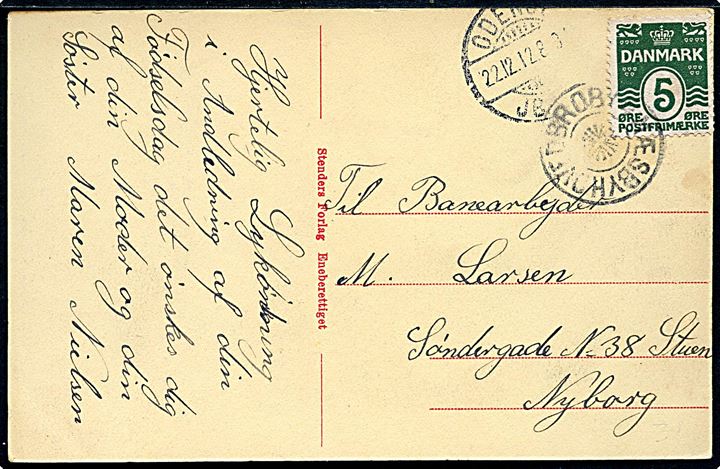 Hjertelig Lykønskning
i Andledning af din
Fødselsdag det ønskes dig
af din Moder og din
Søster Maren Nielsen
Stenders Forlag Eneberettiget
ODENSE
22.12.12. 8
JB
DANMARK
5
ØRE ØRE
POSTFRIMÆRKE
Til Banearbejder
M. Larsen
Søndergade No 38 Stuen
Nyborg